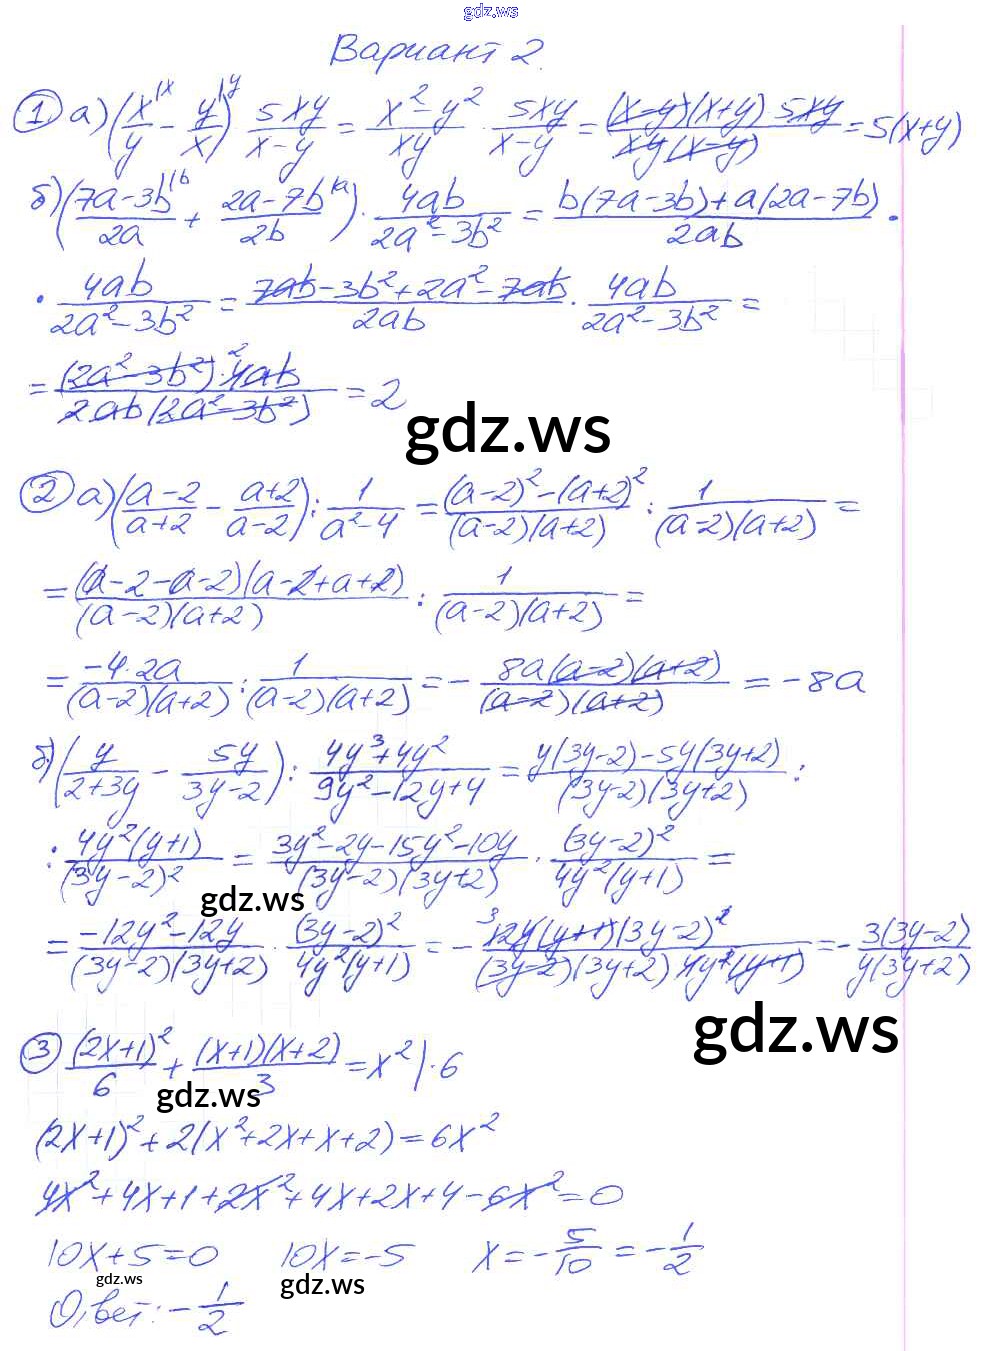 gdz.ws
Вариант 2.
① а) (x/y |x − y/x |y) · 5xy/(x−y) = (x²−y²)/xy · 5xy/(x−y) = (x−y)(x+y) 5xy/(xy(x−y)) = 5(x+y)
б) ((7a−3b)/2a |b + (2a−7b)/2b |a) · 4ab/(2a²−3b²) = (b(7a−3b)+a(2a−7b))/2ab ·
· 4ab/(2a²−3b²) = (7ab−3b²+2a²−7ab)/2ab · 4ab/(2a²−3b²) =
= (2a²−3b²)·4ab 2/(2ab(2a²−3b²)) = 2
gdz.ws
② а) ((a−2)/(a+2) − (a+2)/(a−2)) : 1/(a²−4) = ((a−2)²−(a+2)²)/((a−2)(a+2)) : 1/((a−2)(a+2)) =
= (a−2−a−2)(a−2+a+2)/((a−2)(a+2)) : 1/((a−2)(a+2)) =
= −4·2a/((a−2)(a+2)) : 1/((a−2)(a+2)) = − 8a(a−2)(a+2)/((a−2)(a+2)) = −8a
б) (y/(2+3y) − 5y/(3y−2)) : (4y³+4y²)/(9y²−12y+4) = (y(3y−2)−5y(3y+2))/((3y−2)(3y+2)) :
: 4y²(y+1)/(3y−2)² = (3y²−2y−15y²−10y)/((3y−2)(3y+2)) · (3y−2)²/(4y²(y+1)) =
gdz.ws
= (−12y²−12y)/((3y−2)(3y+2)) · (3y−2)²/(4y²(y+1)) = − 3 12y(y+1)(3y−2)²/((3y−2)(3y+2) 4y²(y+1)) = − 3(3y−2)/(y(3y+2))
gdz.ws
③ (2x+1)²/6 + (x+1)(x+2)/3 = x² |·6
gdz.ws
(2x+1)²+2(x²+2x+x+2)=6x²
4x²+4x+1+2x²+4x+2x+4−6x²=0
10x+5=0 10x=−5 x=−5/10=−1/2
gdz.ws
gdz.ws
Ответ: −1/2